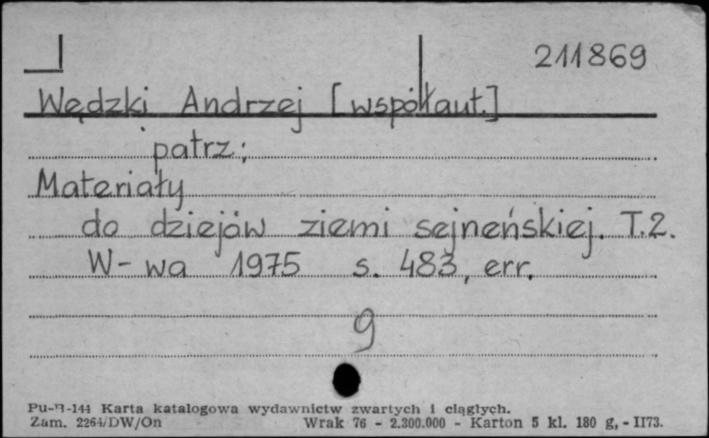 211869
Wędzki Andrzej [współaut.]
patrz:
Materiały
do dziejów ziemi sejneńskiej. T.2.
W-wa 1975 s. 483, err.
9
Pu-B-144 Karta katalogowa wydawnictw zwartych i ciągłych.
Zam. 2264/DW/On Wrak 76 - 2.300.000 - Karton 5 kl. 180 g, - II73.